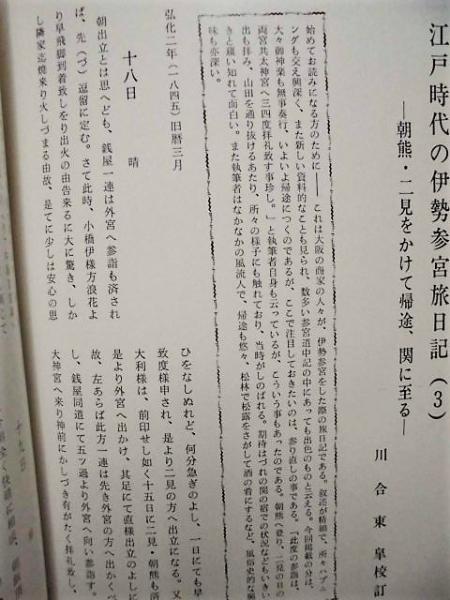 江戸時代の伊勢参宮旅日記（3）
―朝熊・二見をかけて帰途、関に至る―
川合東皐校訂
始めてお読みになる方のために――これは大阪の商家の人々が、伊勢参宮をした際の旅日記である。叙述が精細で、所々ハプニ
ングも交え興深く、また新しい資料的なことも見られ、数多い参宮道中記の中にあっても出色のものと云える。今回掲載の分は、
大々御神楽も無事奏行、いよいよ帰途につくのであるが、ここで注目しておきたいのは、参り直しの事である。「此度の参詣は、
両宮共太神宮へ三四度拝礼致す事珍し。」と執筆者自身も云っているが、こういう事もあったのである。朝熊へ登り、二見の日の
出も拝み、山田を通り抜けるあたり、所々の様子にも触れており、当時がしのばれる。期待はづれの関の宿での状況などもいきい
きと窺い知れて面白い。また執筆者はなかなかの風流人で、帰途も悠々、松林で松露をさがして酒の肴にするなど、風俗史的な興
味も亦深い。
弘化二年（一八四五）旧暦三月
十八日　晴
朝出立とは思へども、銭屋一連は外宮へ参詣も済され
ば、先（づ）逗留に定む。さて此時、小橋伊様方浪花よ
り早飛脚到着致しをり出火の由告来るに大に驚き、しか
し隣家迄焼来り火しづまる由故、是てに少しは安心の思
ひをなしぬれど、何分急ぎのよし、一日にても早
致度様申され、是より二見の方へ出立になる。又
大利様は、前印せし如く十五日に二見・朝熊も済
是より外宮へ出かけ、其足にて直様出立のよしに
故、左あらば此方一連は先き外宮の方へ出かくべ
し、銭屋同道にて五ッ過より外宮へ向い参詣す。
大神宮へ来り神前にかしづき有がたく拝礼致し、
十九日